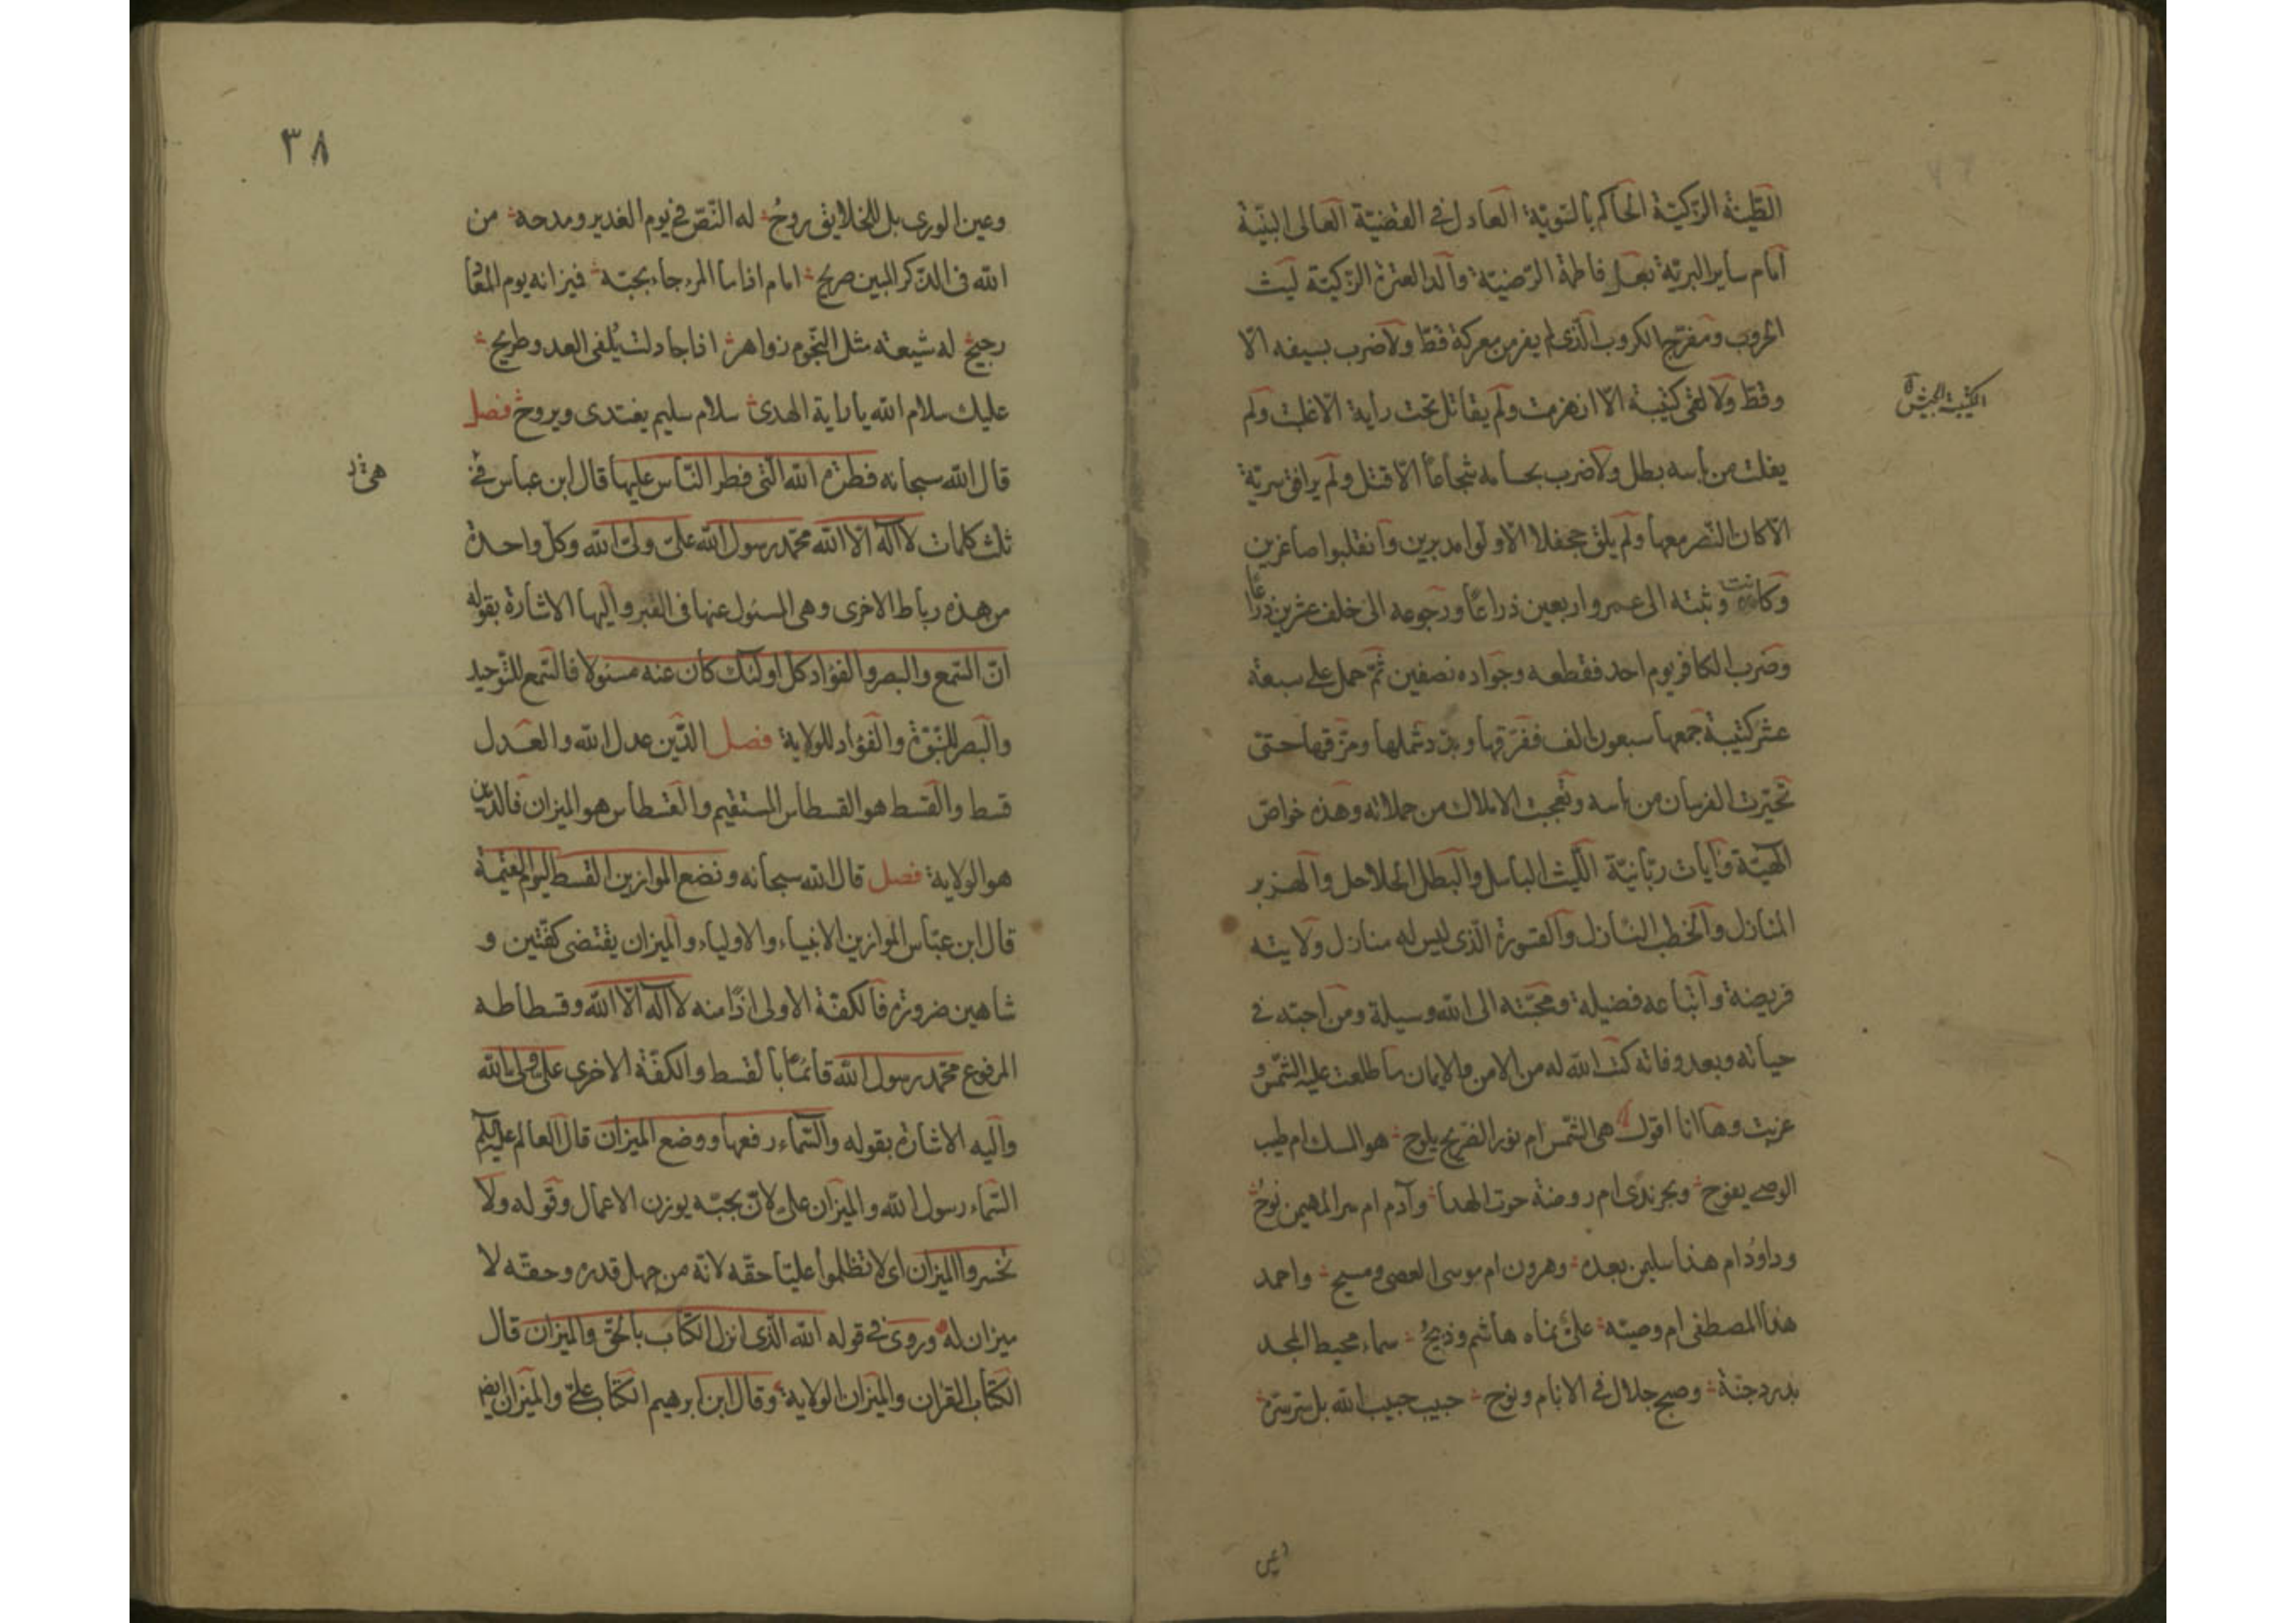 الطيبة الزكية الحاكم بالسوية العادل في القضية العالي البنية
امام ساير البرية بعل فاطمة الرضية والد العترة الزكية ليث
الحروب ومفرج الكروب الذي لم يفر من معركة قط ولا ضرب بسيفه الا
وقط ولا لقي كتيبة الا انهزمت ولم يقاتل تحت راية الا غلبت ولم
الكتيبة الجيش
يفلت من باسه بطل ولا ضرب بحسامه شجاعا الا قتل ولم يرافق سرية
الا كان النصر معها ولم يلق جحفلا الا ولوا مدبرين وانقلبوا صاغرين
وكانت وثبته الى عمرو اربعين ذراعا ورجوعه الى خلف عشرين ذراعا
وضرب الكافر يوم احد فقطعه وجواده نصفين ثم حمل على سبعة
عشر كتيبة جمعها سبعون الف ففرقها وبدد شملها ومزقها حتى
تحيرت الفرسان من باسه وتعجبت الاملاك من حملاته وهذه خواص
الهية وآيات ربانية الليث الباسل والبطل الحلاحل والهزبر
المنازل والخطب النازل والقسورة الذي ليس له منازل ولايته
فريضة واتباعه فضيلة ومحبته الى الله وسيلة ومن احبه في
حياته وبعد وفاته كتب الله له من الامن والايمان ما طلعت عليه الشمس و
غربت وها انا اقول هي الشمس ام نور الضريح يلوح هو المسك ام طيب
الوصي يفوح وبحر ندى ام روضة حوت الهدا وآدم ام سر المهيمن نوح
وداود ام هذا سليمن بعده وهرون ام موسى العصى ومسيح واحمد
هذا المصطفى ام وصيه علي نماه هاشم وذبيح سماء محيط المجد
بدر دجنة وصبح جلال في الانام ونوح حبيب حبيب الله بل سر سره
وعين
٣٨
وعين الورى بل للخلايق روح له النص في يوم الغدير ومدحه من
الله في الذكر المبين صريح امام اذا ما المرء جاء بحبه فميزانه يوم المعاد
رجيح له شيعة مثل النجوم زواهر اذا جادلت يلفى العدو طريح
عليك سلام الله يا راية الهدى سلام سليم يغتدى ويروح فصل
قال الله سبحانه فطرة الله التي فطر الناس عليها قال ابن عباس في
ثلث كلمات لا اله الا الله محمد رسول الله علي ولي الله وكل واحدة
من هذه رباط الاخرى وهي المسئول عنها في القبر واليها الاشارة بقوله
ان السمع والبصر والفؤاد كل اولئك كان عنه مسئولا فالسمع للتوحيد
والبصر للنبوة والفؤاد للولاية فصل الدين عدل الله والعدل
قسط والقسط هو القسطاس المستقيم والقسطاس هو الميزان فالدين
هو الولاية فصل قال الله سبحانه ونضع الموازين القسط ليوم القيمة
قال ابن عباس الموازين الانبياء والاولياء والميزان يقتضى كفتين و
شاهين ضرورة فالكفة الاولى اذا منه لا اله الا الله وقسطاطه
المرفوع محمد رسول الله قائما بالقسط والكفة الاخرى علي ولي الله
واليه الاشارة بقوله والسماء رفعها ووضع الميزان قال العالم عليه السلم
السماء رسول الله والميزان علي لان بحبه يوزن الاعمال وقوله ولا
تخسروا الميزان اي لا تظلموا عليا حقه لانه من جهل قدره وحقه لا
ميزان له وروى في قوله الله الذي انزل الكتاب بالحق والميزان قال
الكتاب القرآن والميزان الولاية وقال ابن ابرهيم الكتاب علي والميزان ايضا